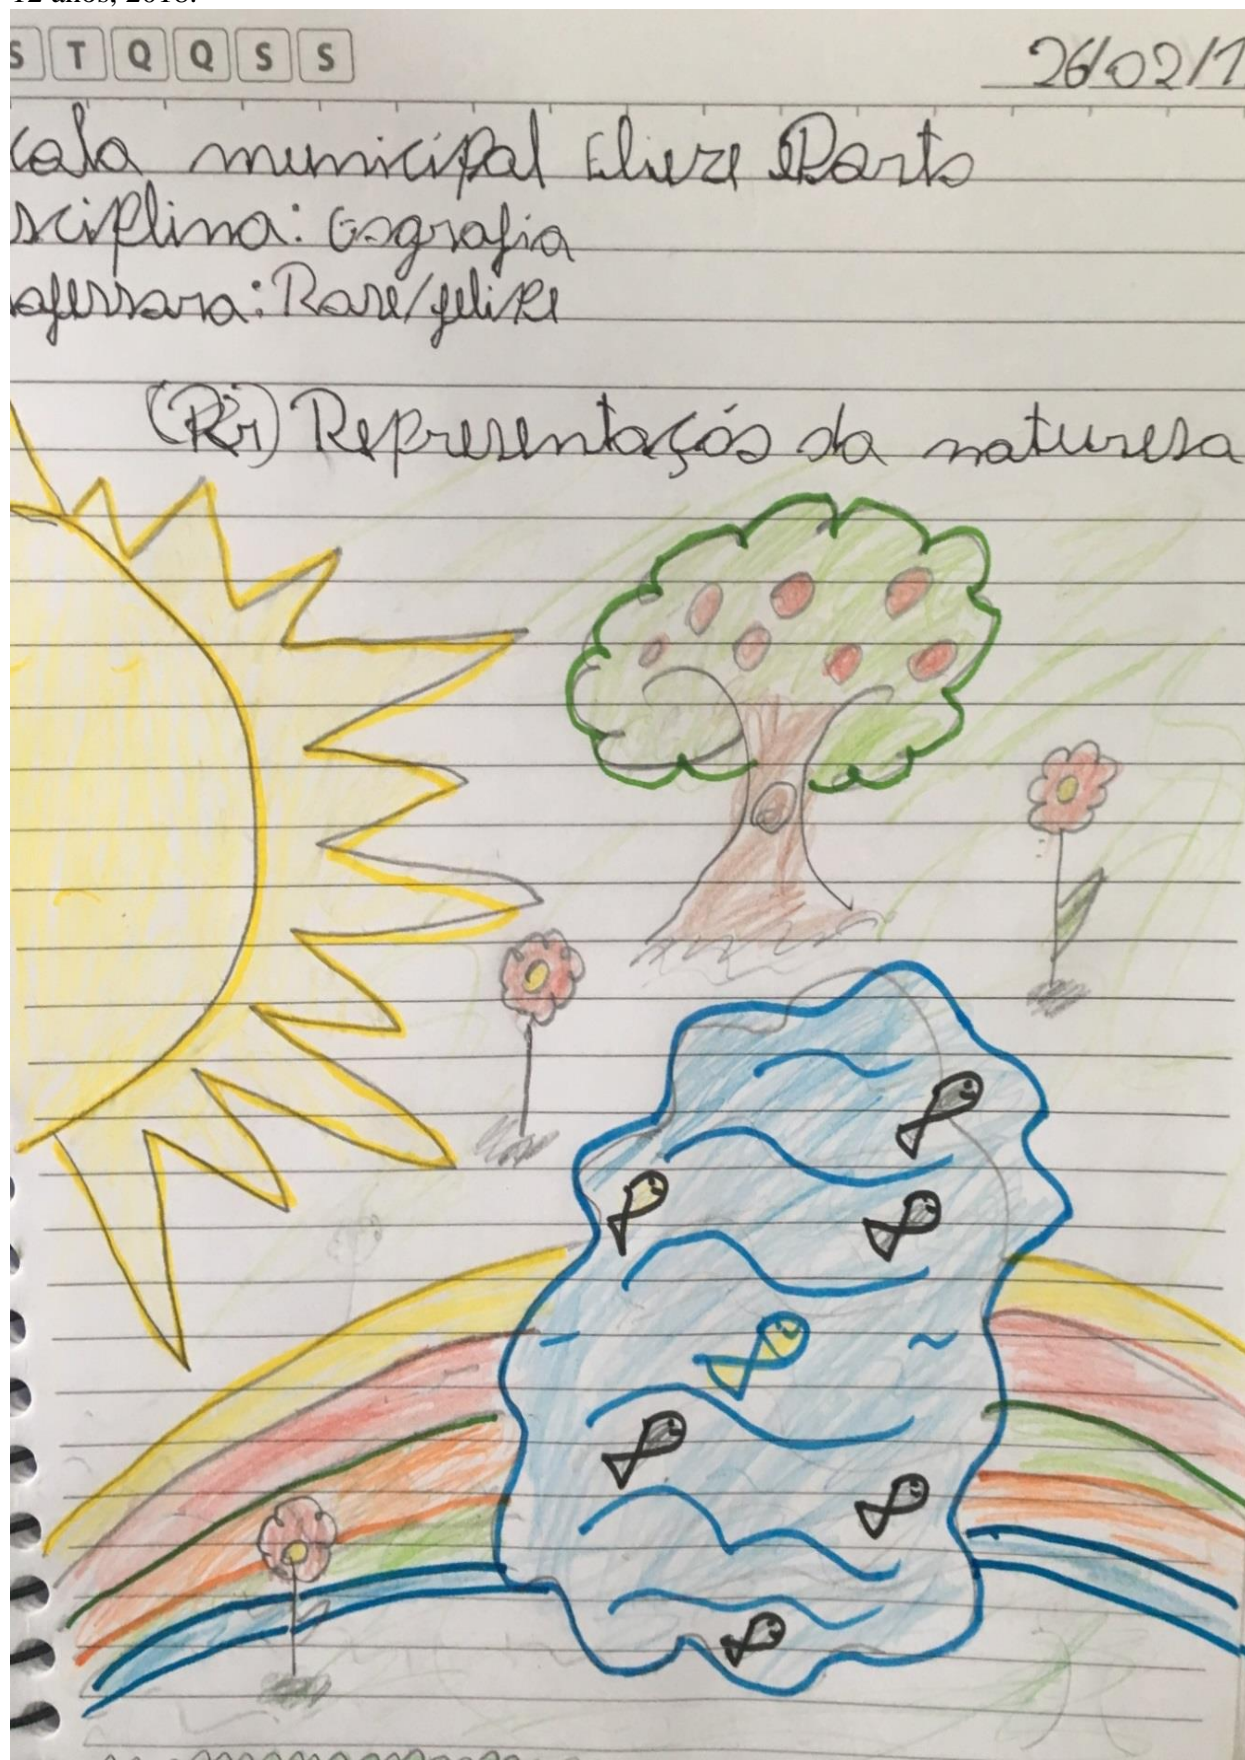 12 anos, 2018.
S T Q Q S S
26/02/1
cola municipal Elieze Porto
sciplina: Geografia
ofessora: Rose/felipe
Representaçós da naturesa